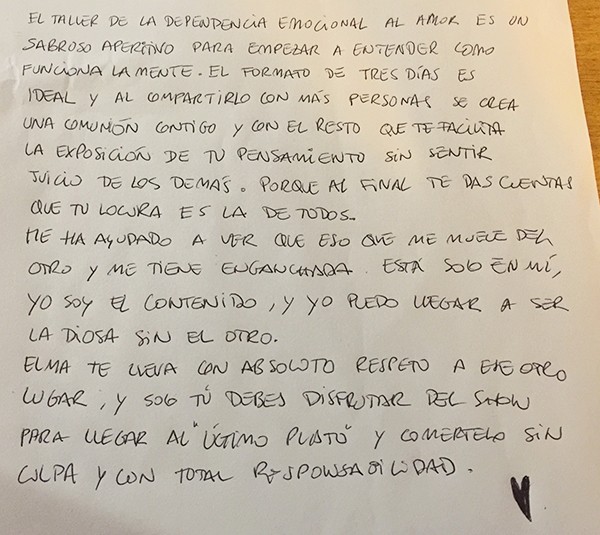 EL TALLER DE LA DEPENDENCIA EMOCIONAL AL AMOR ES UN
SABROSO APERITIVO PARA EMPEZAR A ENTENDER COMO
FUNCIONA LA MENTE. EL FORMATO DE TRES DÍAS ES
IDEAL Y AL COMPARTIRLO CON MÁS PERSONAS SE CREA
UNA COMUNIÓN CONTIGO Y CON EL RESTO QUE TE FACILITA
LA EXPOSICIÓN DE TU PENSAMIENTO SIN SENTIR
JUICIO DE LOS DEMÁS. PORQUE AL FINAL TE DAS CUENTAS
QUE TU LOCURA ES LA DE TODOS.
ME HA AYUDADO A VER QUE ESO QUE ME MUEVE DEL
OTRO Y ME TIENE ENGANCHADA. ESTÁ SOLO EN MÍ,
YO SOY EL CONTENIDO, Y YO PUEDO LLEGAR A SER
LA DIOSA SIN EL OTRO.
ELMA TE LLEVA CON ABSOLUTO RESPETO A ESE OTRO
LUGAR, Y SOLO TÚ DEBES DISFRUTAR DEL SHOW
PARA LLEGAR AL "ÚLTIMO PLATO" Y COMERTELO SIN
CULPA Y CON TOTAL RESPONSABILIDAD.